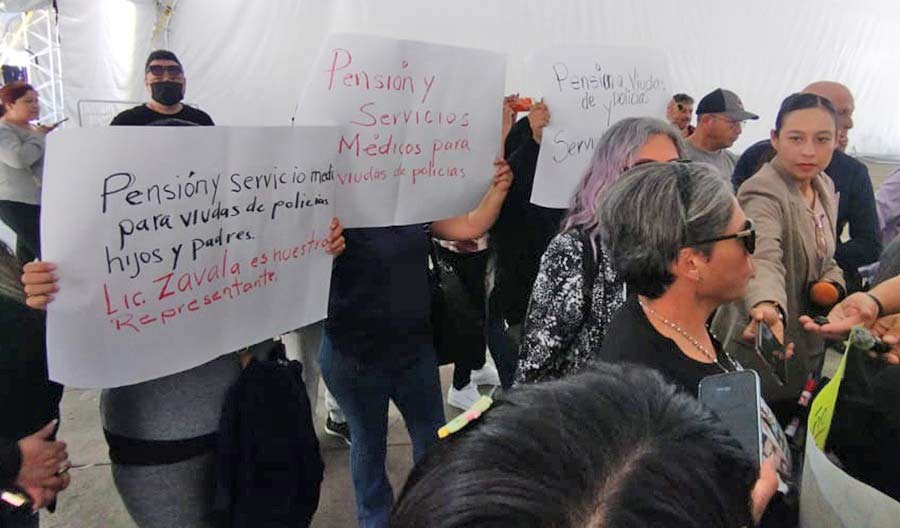 Pensión y servicio medi
para viudas de policias
hijos y padres.
Lic. Zavala es nuestra
Representante.
Pensión y
Servicios
Médicos para
viudas de policias
Pensión a viudas
de policias
y